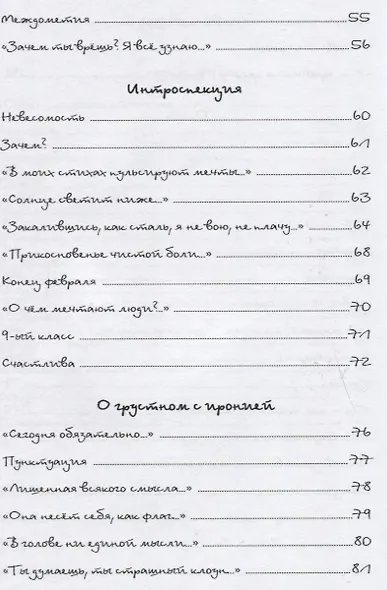 Междометия 55
«Зачем ты врёшь? Я всё узнаю...» 56
Интроспекция
Невесомость 60
Зачем? 61
«В моих стихах пульсируют мечты...» 62
«Солнце светит ниже...» 63
«Закалившись, как сталь, я не вою, не плачу...» 64
«Прикосновенье чистой боли...» 68
Конец февраля 69
«О чём мечтают люди?...» 70
9-ый класс 71
Счастлива 72
О грустном с иронией
«Сегодня обязательно...» 76
Пунктуация 77
«Лишённая всякого смысла...» 78
«Она несёт себя, как флаг...» 79
«В голове ни единой мысли...» 80
«Ты думаешь, ты страшный клоун...» 81